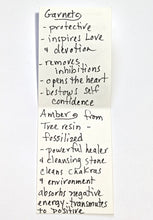 Garnet
- protective
- inspires Love
& devotion
- removes
inhibitions
- opens the heart
- bestows self
confidence
Amber from
Tree resin -
fossilized
- powerful healer
& cleansing stone
cleans chakras
& environment
absorbs negative
energy - transmutes
to positive